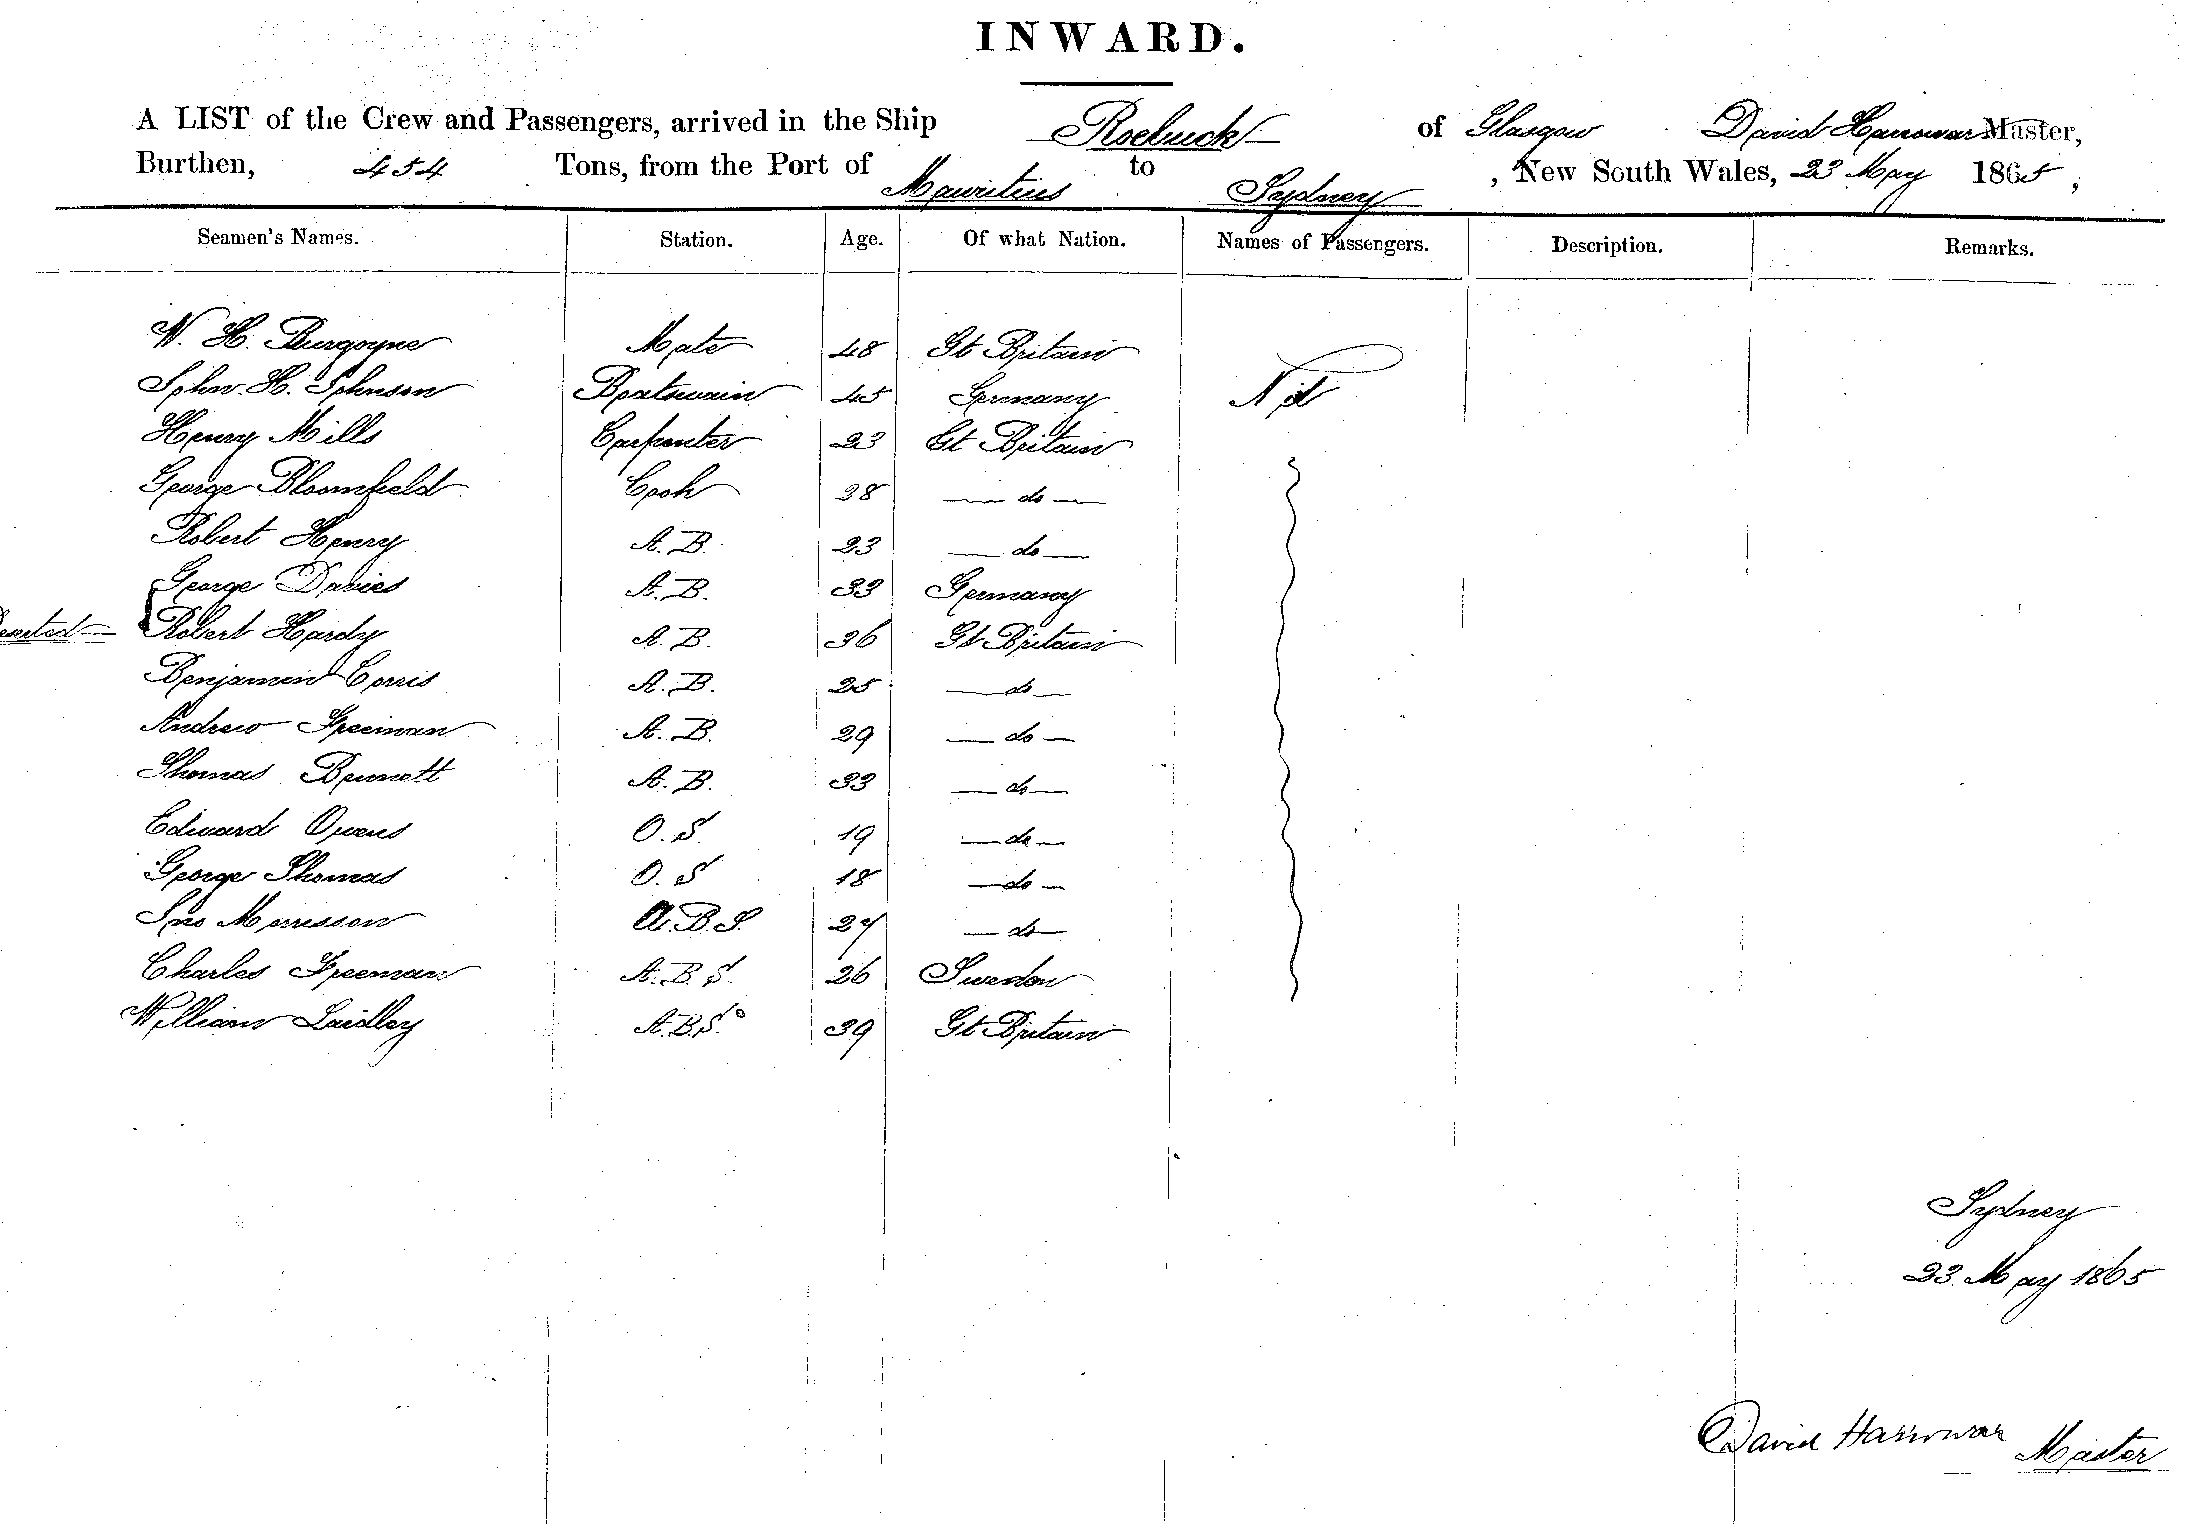 INWARD.
A LIST of the Crew and Passengers, arrived in the Ship Roebuck of Glasgow David Harrowar Master,
Burthen, 454 Tons, from the Port of Mauritius to Sydney, New South Wales, 23 May 1865,
Seamen's Names. Station. Age. Of what Nation. Names of Passengers. Description. Remarks.
W. H. Burgoyne Mate 48 Gt Britain
John. H. Johnson Boatswain 45 Germany Nil
Henry Mills Carpenter 23 Gt Britain
George Bloomfield Cook 28 — do —
Robert Henry A. B. 23 — do —
George Davies A. B. 33 Germany
Robert Hardy A. B. 36 Gt Britain
Benjamin Corris A. B. 25 — do —
Andrew Freeman A. B. 29 — do —
Thomas Bennett A. B. 33 — do —
Edward Owens O. S 19 — do —
George Thomas O. S 18 — do —
Jno Morrisson A. B. S. 27 — do —
Charles Freeman A. B. S. 26 Sweden
William Laidley A. B. S. 39 Gt Britain
Sydney
23 May 1865
David Harrowar Master